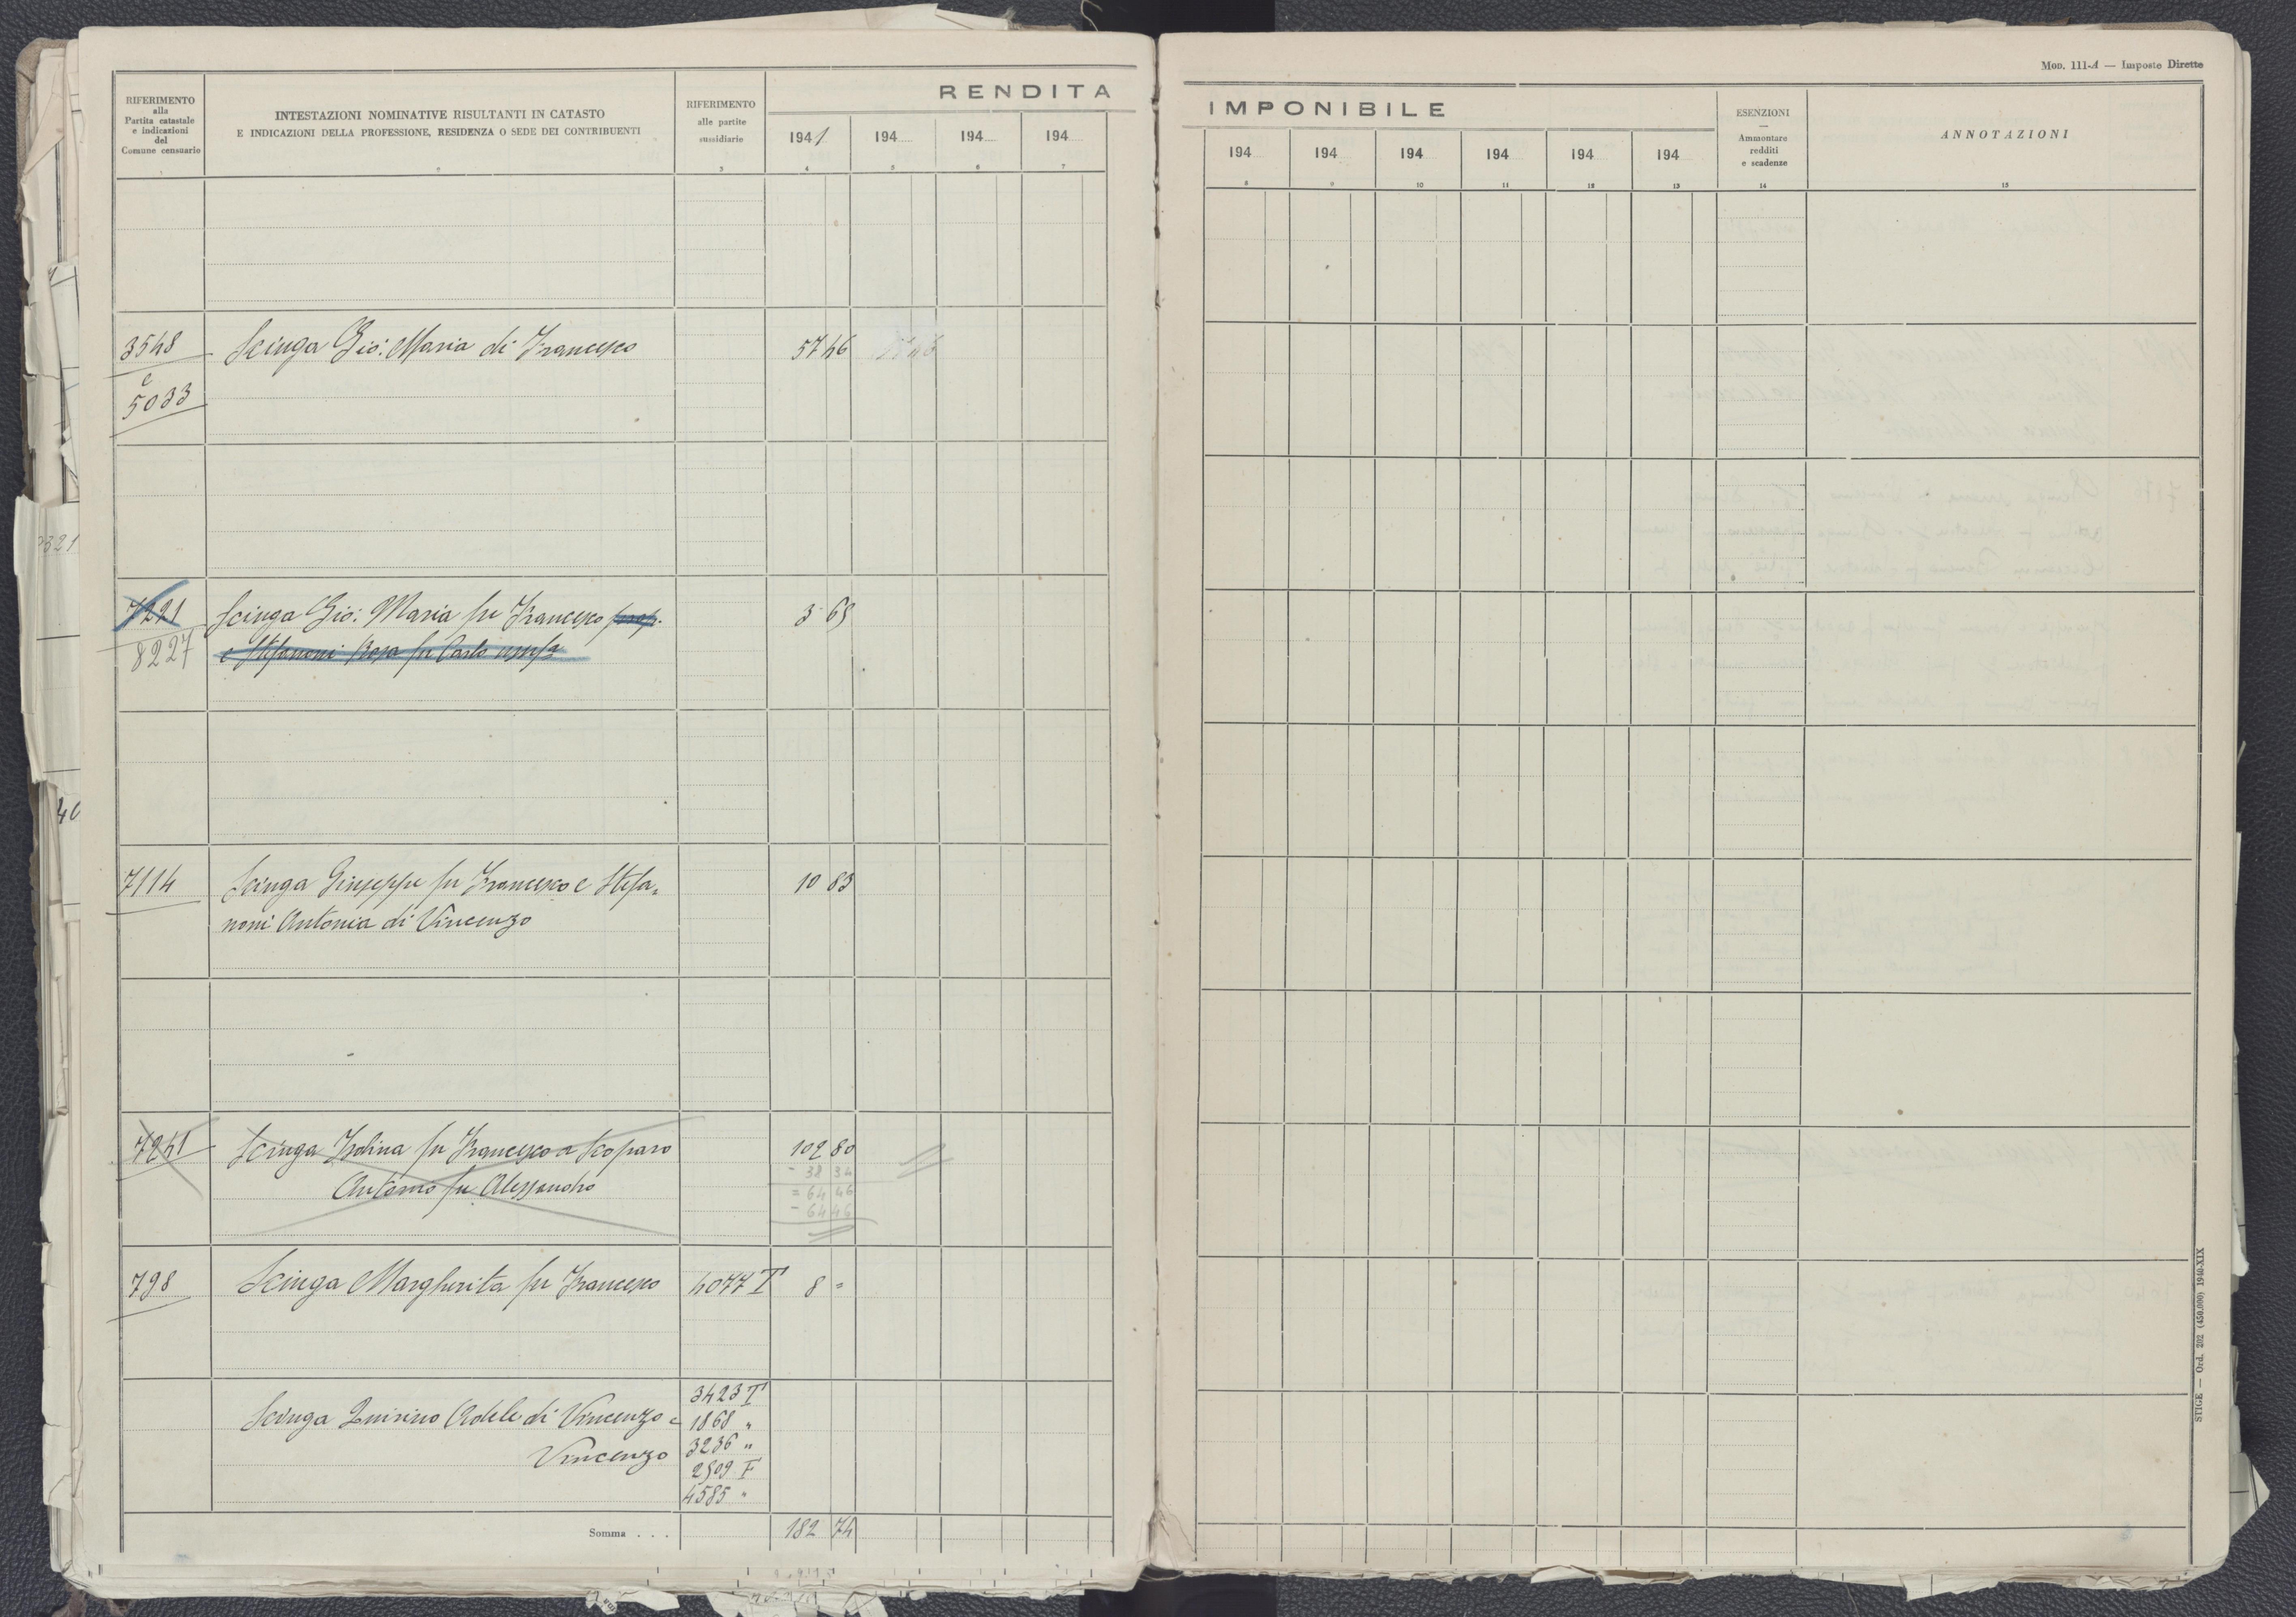 Mod. 111-A — Imposte Dirette
RIFERIMENTO
alla
Partita catastale
e indicazioni
del
Comune censuario
INTESTAZIONI NOMINATIVE RISULTANTI IN CATASTO
E INDICAZIONI DELLA PROFESSIONE, RESIDENZA O SEDE DEI CONTRIBUENTI
RIFERIMENTO
alle partite
sussidiarie
RENDITA
IMPONIBILE
1941 194 194 194
194 194 194 194 194 194
ESENZIONI
—
Ammontare
redditi
e scadenze
ANNOTAZIONI
1 2 3 4 5 6 7
8 9 10 11 12 13 14 15
3548 Scinga Gio: Maria di Francesco 57 46
e
5033
7221 Scinga Gio: Maria fu Francesco prop. 3 69
8227 e Stefanoni Rosa fu Carlo usuf.
7114 Scinga Giuseppe fu Francesco e Stefa=
noni Antonia di Vincenzo 10 83
7241 Scinga Isolina fu Francesco a Scoparo 102 80
Antonio fu Alessandro
- 38 34
= 64 46
- 64 46
798 Scinga Margherita fu Francesco 4077 T 8 =
Scinga Quirino Adele di Vincenzo e
Vincenzo
3423 T
1868 "
3236 "
2909 F
4585 "
Somma . . . 182 74
STIGE — Ord. 202 (450.000) 1940-XIX
2321